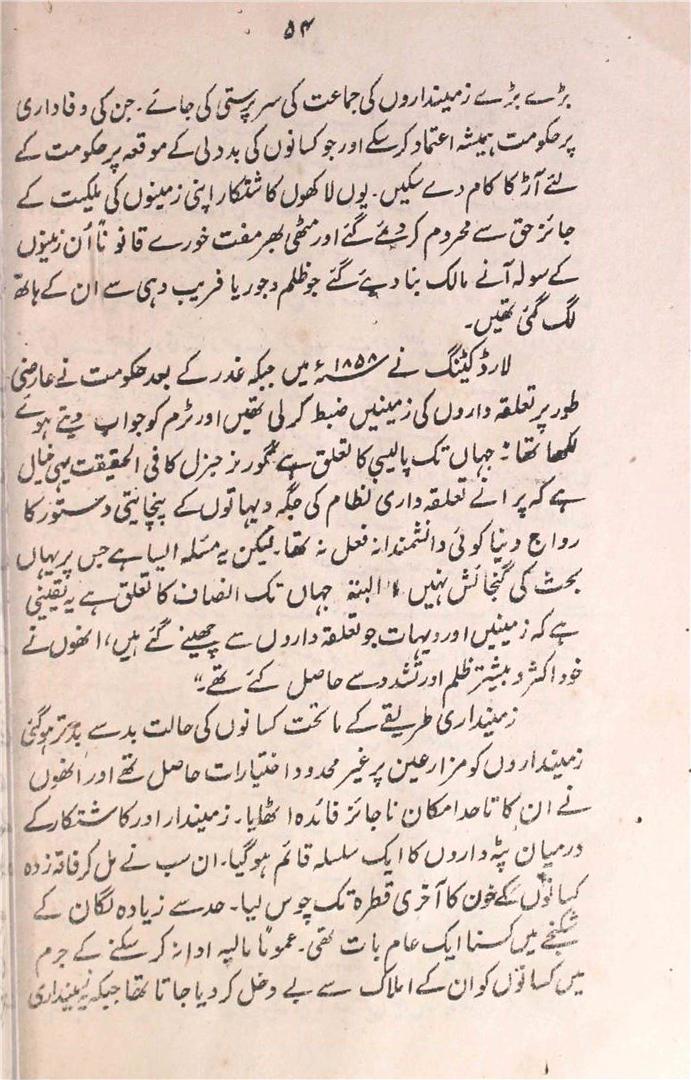 ۵۴
بڑے بڑے زمینداروں کی جماعت کی سرپرستی کی جائے۔ جن کی وفاداری
پر حکومت ہمیشہ اعتماد کر سکے اور جو کسانوں کی بددلی کے موقعہ پر حکومت کے
لئے آڑ کا کام دے سکیں۔ یوں لاکھوں کاشتکار اپنی زمینوں کی ملکیت کے
جائز حق سے محروم کر دیئے گئے اور مٹھی بھر مفت خورے قانوناً اُن زمینوں
کے سولہ آنے مالک بنا دیئے گئے جو ظلم و جور یا فریب دہی سے ان کے ہاتھ
لگ گئی تھیں۔
لارڈ کیننگ نے ۱۸۵۸ء میں جبکہ غدر کے بعد حکومت نے عارضی
طور پر تعلقہ داروں کی زمینیں ضبط کر لی تھیں اوٹرم کو جواب دیتے ہوئے
لکھا تھا: جہاں تک پالیسی کا تعلق ہے گورنر جنرل کا فی الحقیقت یہی خیال
ہے کہ پرانے تعلقہ داری نظام کی جگہ دیہاتوں کے پنچایتی دستور کا
رواج دینا کوئی دانشمندانہ فعل نہ تھا۔ لیکن یہ مسئلہ ایسا ہے جس پر یہاں
بحث کی گنجائش نہیں، البتہ جہاں تک انصاف کا تعلق ہے یہ یقینی
ہے کہ زمینیں اور دیہات جو تعلقہ داروں سے چھینے گئے ہیں، انھوں نے
خود اکثر و بیشتر ظلم اور تشدد سے حاصل کئے تھے۔"
زمینداری طریقے کے ماتحت کسانوں کی حالت بد سے بدتر ہو گئی
زمینداروں کو مزارعین پر غیر محدود اختیارات حاصل تھے اور انھوں
نے ان کا تا حد امکان ناجائز فائدہ اٹھایا۔ زمیندار اور کاشتکار کے
درمیان پٹہ داروں کا ایک سلسلہ قائم ہو گیا۔ ان سب نے مل کر فاقہ زدہ
کسانوں کے خون کا آخری قطرہ تک چوس لیا۔ حد سے زیادہ لگان کے
شکنجے میں کسنا ایک عام بات تھی۔ عموماً مالیہ ادا نہ کر سکنے کے جرم
میں کسانوں کو ان کے املاک سے بے دخل کر دیا جاتا تھا جبکہ یہ زمینداری